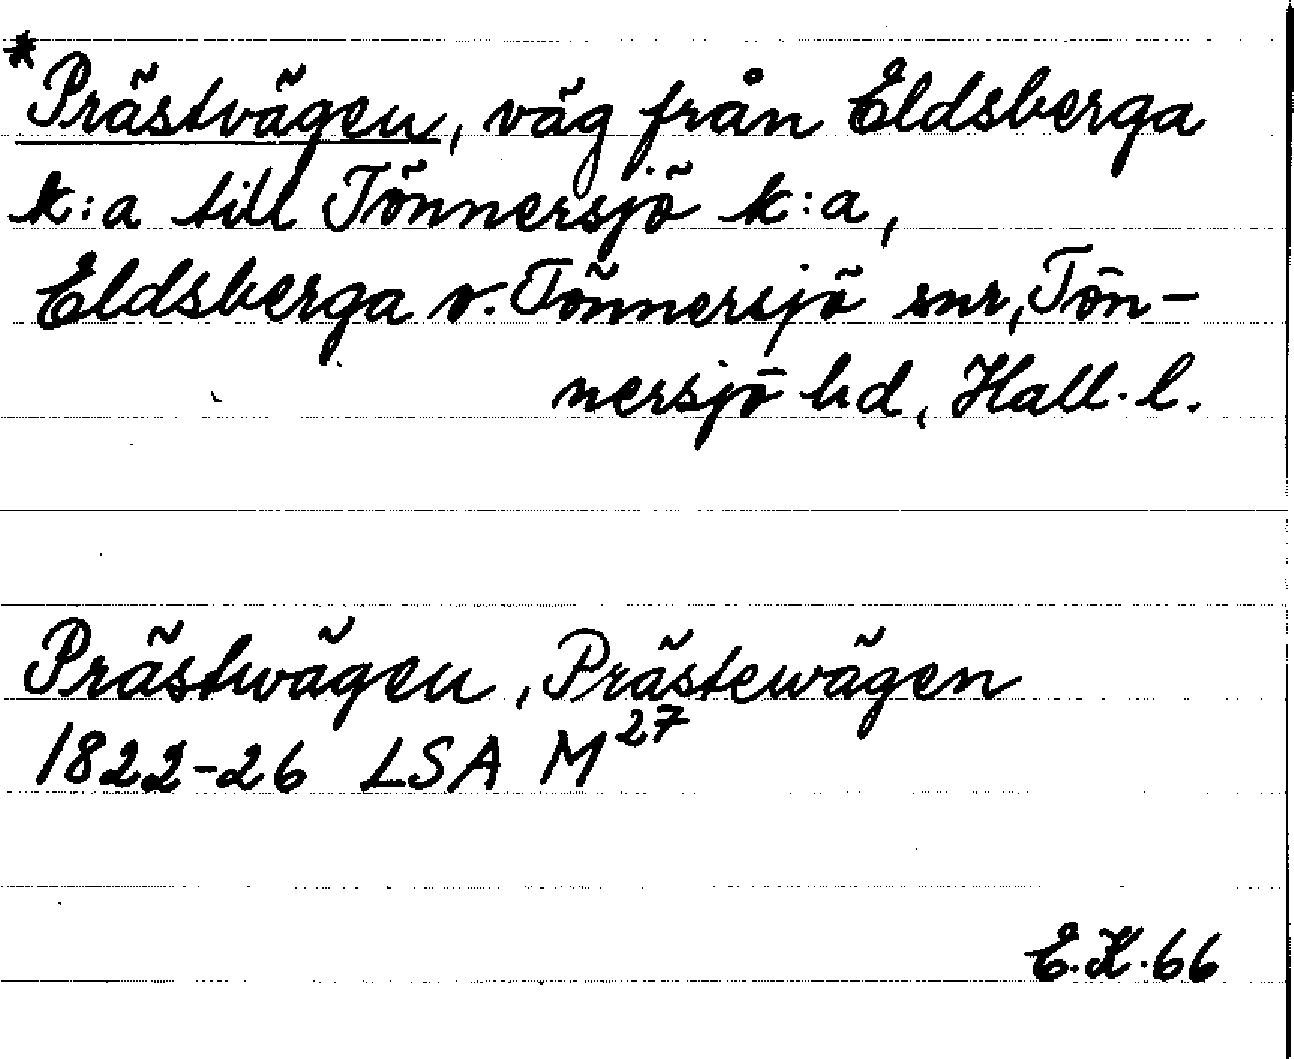 *Prästvägen, väg från Eldsberga
k:a till Tönnersjö k:a,
Eldsberga o. Tönnersjö snr, Tön-
nersjö hd, Hall. l.
Prästwägen, Prästewägen
1822-26 LSA M27
E.K.66